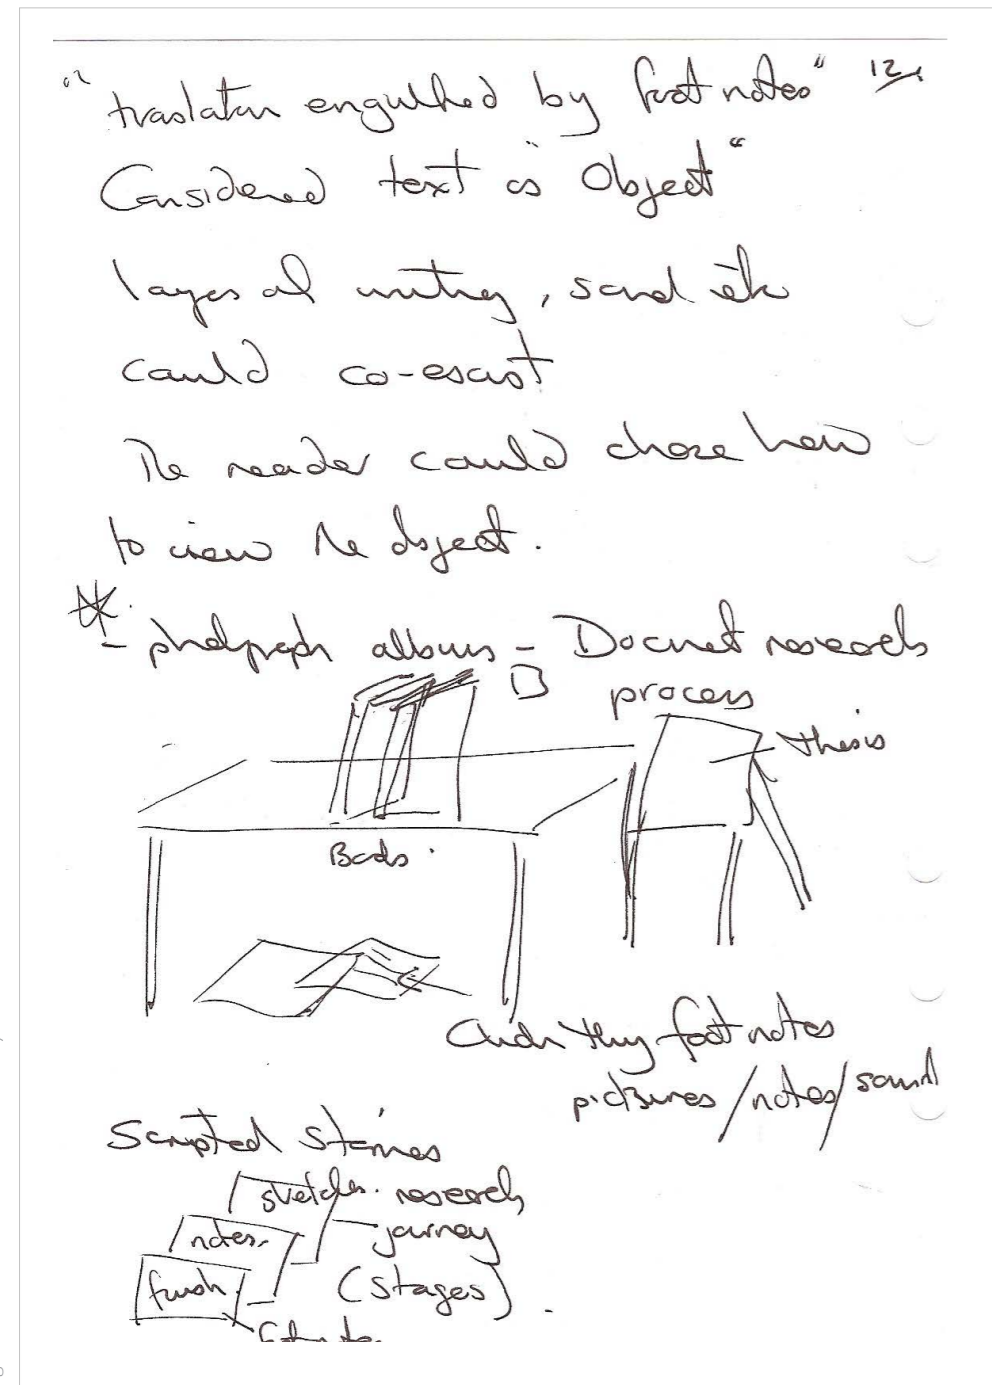 "traslation engulfed by footnotes" 12
Considered text as "Object"
layers of writing, sound etc
could co-exist
The reader could chose how
to view the object.
- photograph albums - Document research
process
thesis
Books
footnotes
pictures/notes/sound
Scripted Stories
sketches. research
notes. journey
finish. (stages)